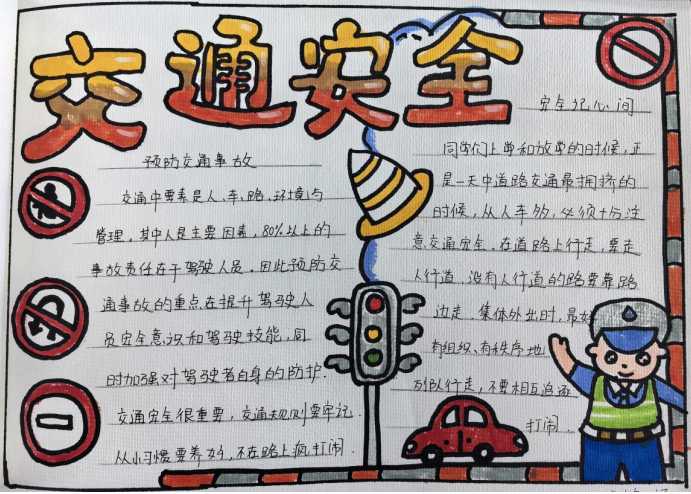 交通安全
预防交通事故
交通中要素是人、车、路、环境与
管理，其中人是主要因素，80%以上的
事故责任在于驾驶人员，因此预防交
通事故的重点在提升驾驶人
员安全意识和驾驶技能，同
时加强对驾驶者自身的防护．
交通安全很重要，交通规则要牢记．
从小习惯要养好，不在路上疯打闹．
安全记心间
同学们上学和放学的时候，正
是一天中道路交通最拥挤的
时候，从人车多，必须十分注
意交通安全．在道路上行走，要走
人行道，没有人行道的路要靠路
边走．集体外出时，最好
有组织、有秩序地
列队行走，不要相互追逐
打闹．